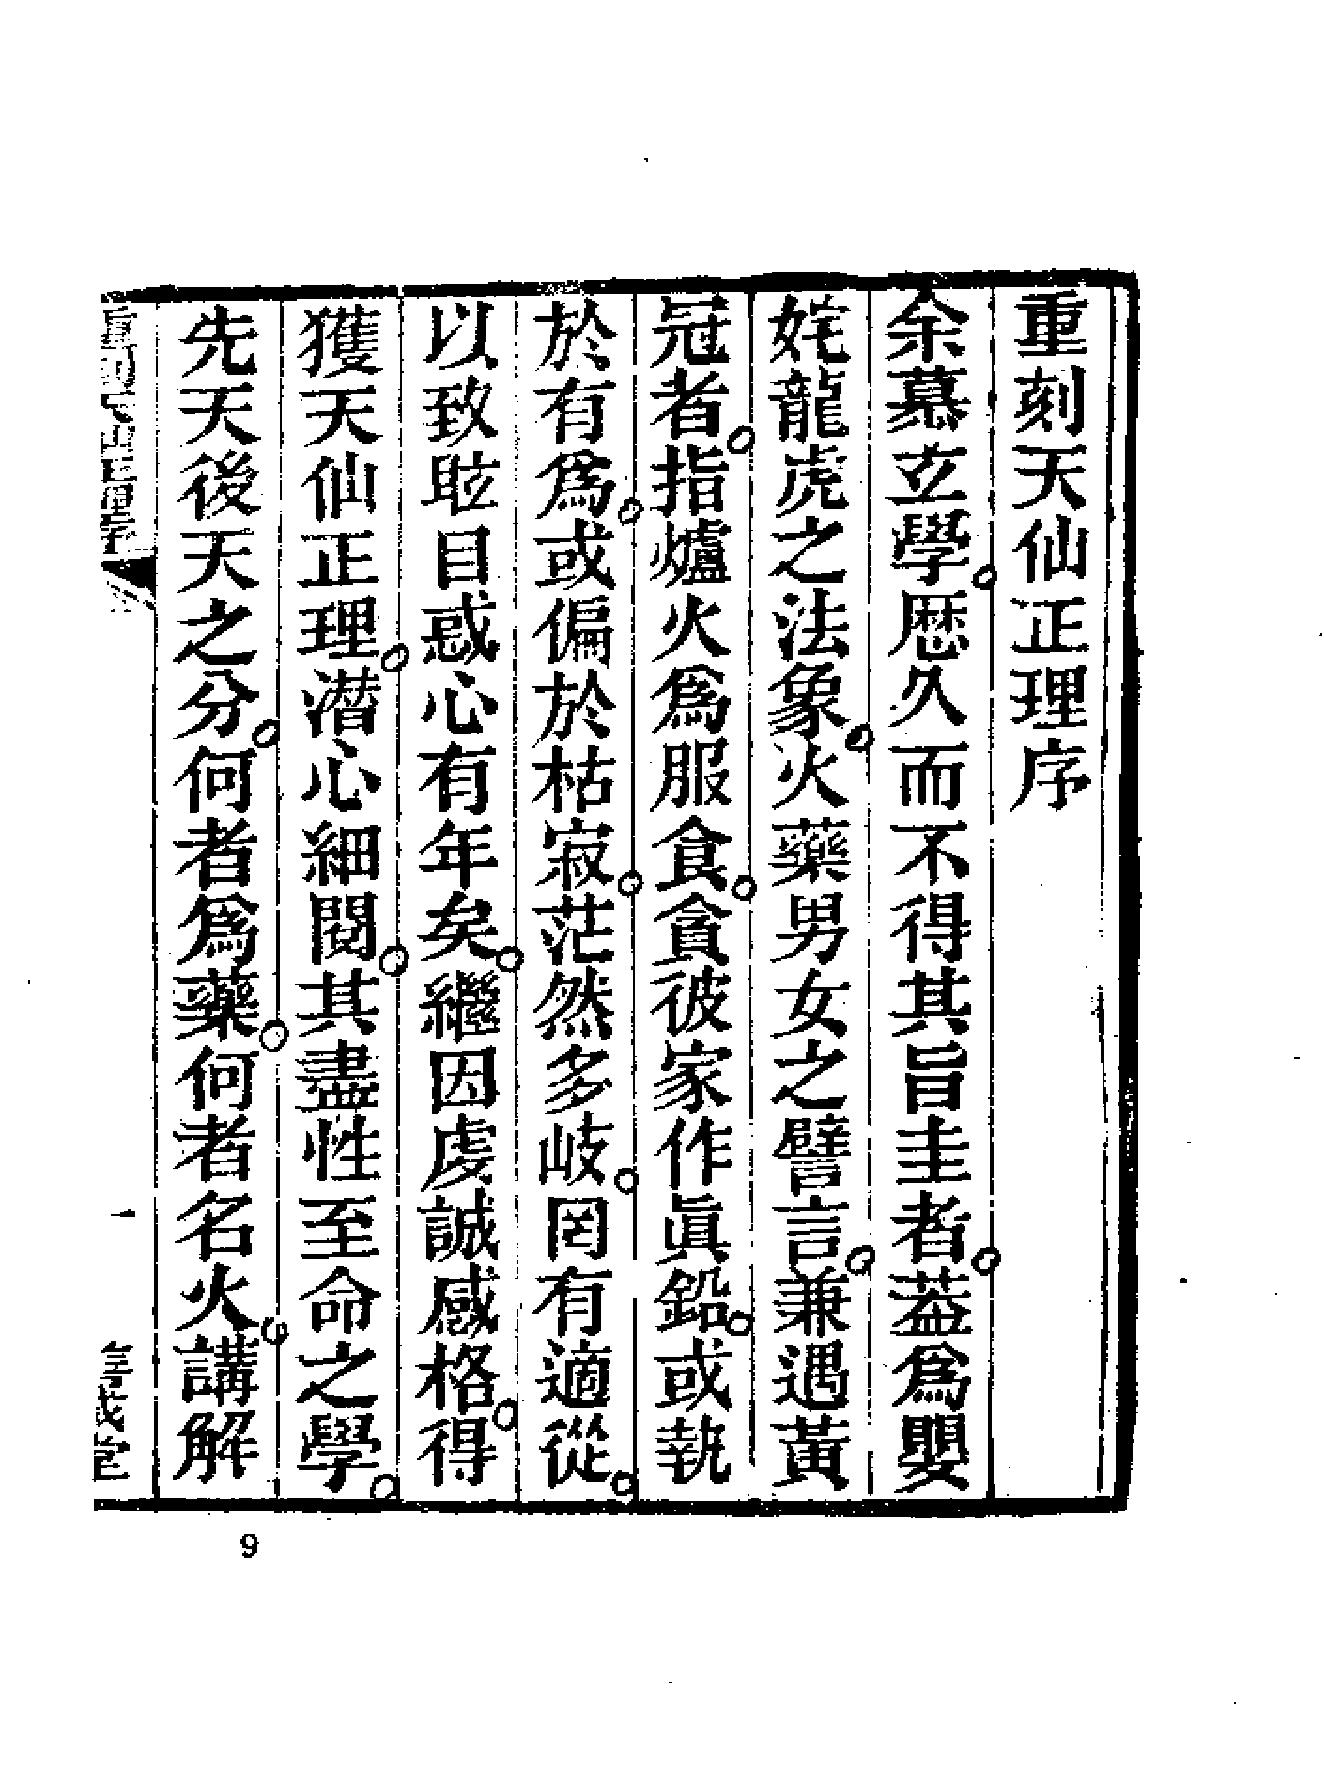 重刻天仙正理序
余慕玄學。厯久而不得其旨圭者。葢爲嬰
姹龍虎之法象。火藥男女之譬言。兼遇黃
冠者。指爐火爲服食。貪彼家作眞鉛。或執
於有爲。或偏於枯寂。茫然多岐。罔有適從。
以致眩目惑心有年矣。繼因虔誠感格。得
獲天仙正理。潛心細閱。其盡性至命之學。
先天後天之分。何者爲藥。何者名火。講解
重刻天仙正理序
一
9